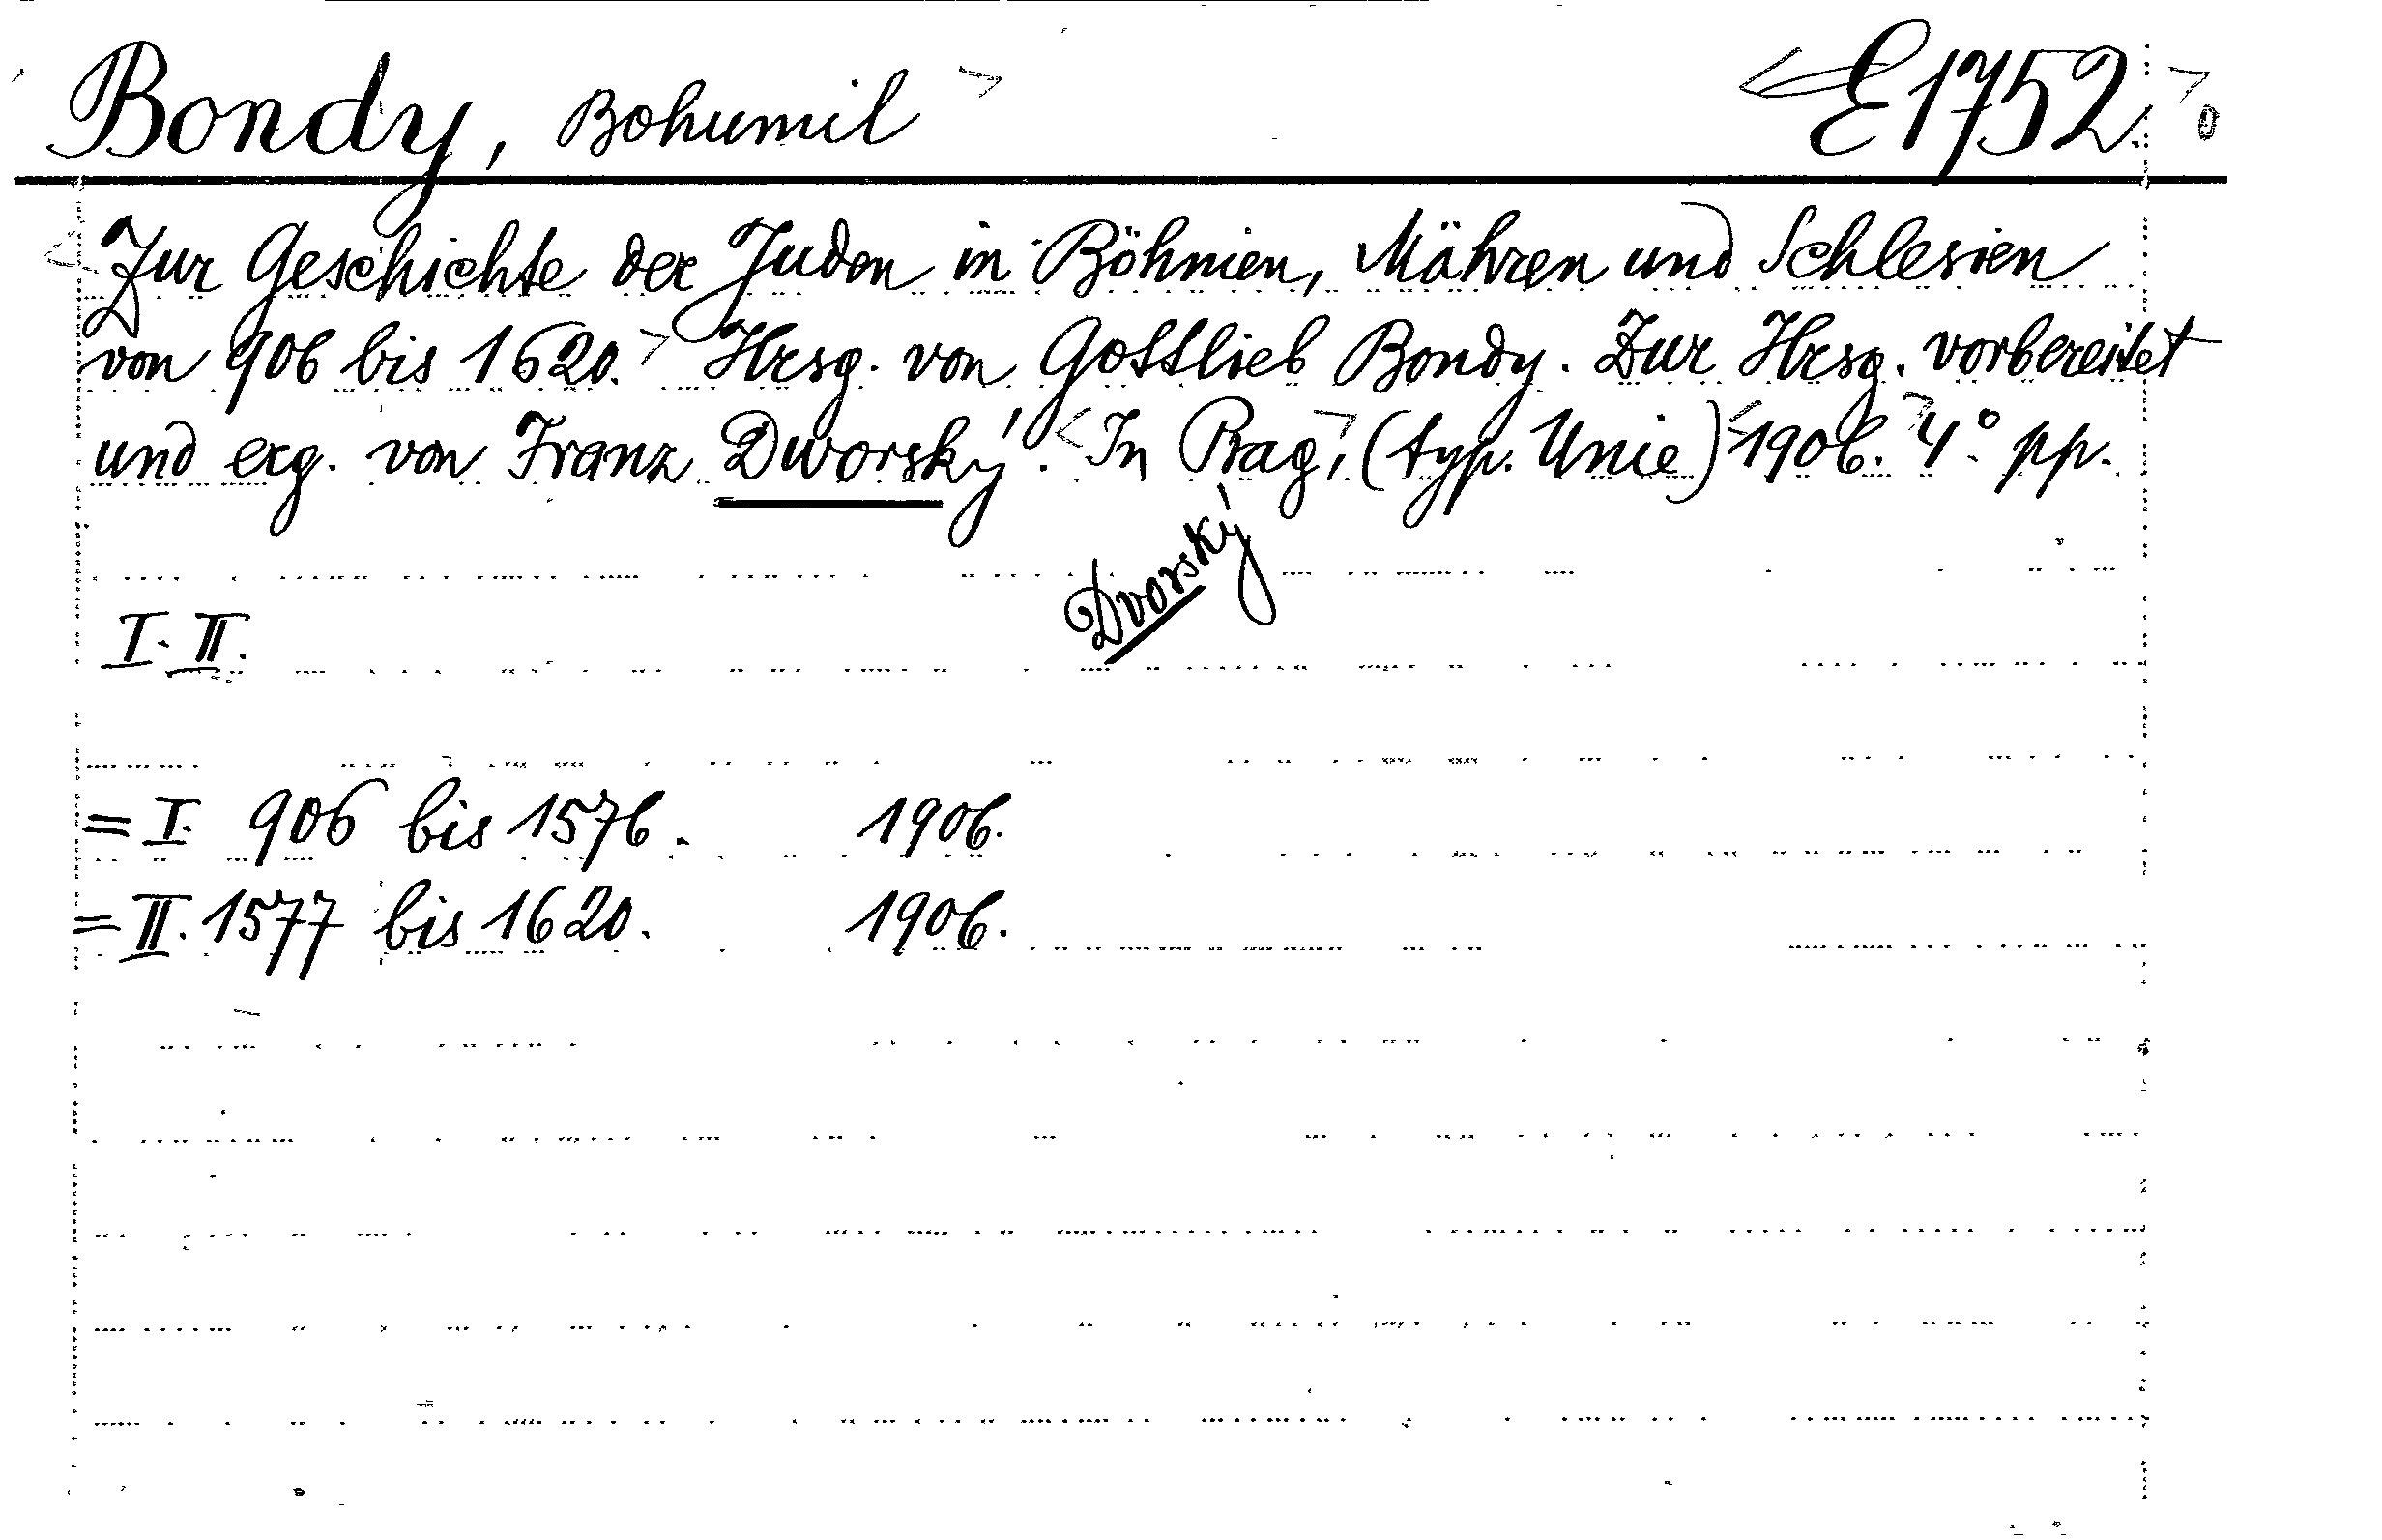 Bondy, Bohumil E1752.
Zur Geschichte der Juden in Böhmen, Mähren und Schlesien
von 906 bis 1620. Hrsg. von Gottlieb Bondy. Zur Hrsg. vorbereitet
und erg. von Franz Dworský. In Prag, (typ. Unie) 1906. 4° pp.
Dvorský
I-II.
= I. 906 bis 1576. 1906.
= II. 1577 bis 1620. 1906.